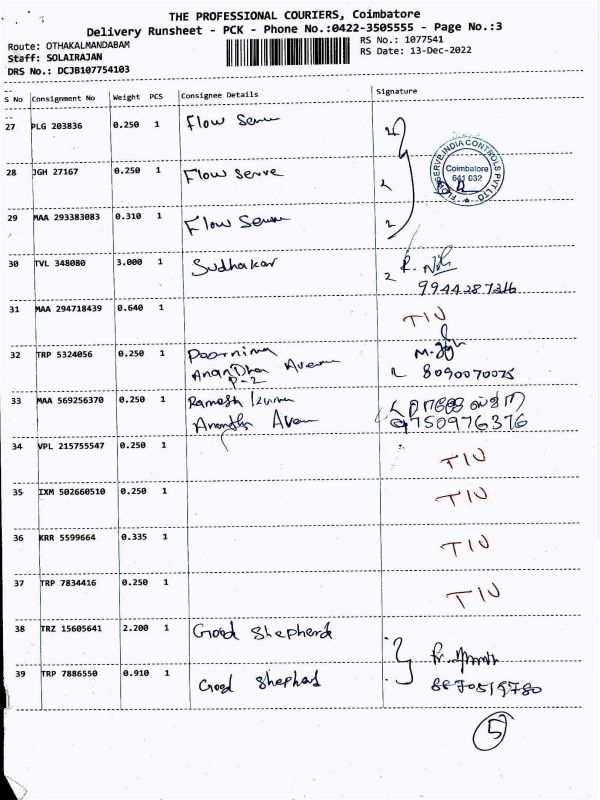 THE PROFESSIONAL COURIERS, Coimbatore
Delivery Runsheet - PCK - Phone No.:0422-3505555 - Page No.:3
Route: OTHAKALMANDABAM
RS No.: 1077541
Staff: SOLAIRAJAN
RS Date: 13-Dec-2022
DRS No.: DCJB107754103
S No Consignment No Weight PCS Consignee Details Signature
27 PLG 203836 0.250 1 Flow Serve
FLOWSERVE INDIA CONTROLS PVT LTD
Coimbatore
641 032
28 JGH 27167 0.250 1 Flow Serve
29 MAA 293383083 0.310 1 Flow Serve
30 TVL 348080 3.000 1 Sudhakar
9944287316
31 MAA 294718439 0.640 1 TIN
32 TRP 5324056 0.250 1 Poornima
Anandhan Avenue
P-2 8090070075
33 MAA 569256370 0.250 1 Ramesh Kumar
Anandha Avenue 9750976376
34 VPL 215755547 0.250 1 TIN
35 IXM 502660510 0.250 1 TIN
36 KRR 5599664 0.335 1 TIN
37 TRP 7834416 0.250 1 TIN
38 TRZ 15605641 2.200 1 Good Shepherd
39 TRP 7886550 0.910 1 Good Shepherd
8870519780
5